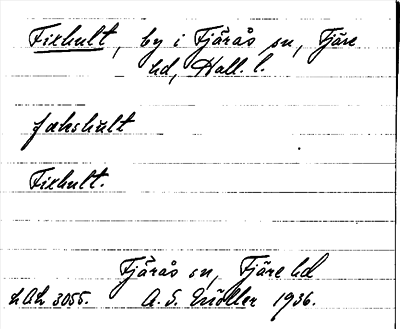 Fixhult, by i Fjärås sn, Fjäre
hd, Hall. l.
fɷkshult
Fixhult.
Fjärås sn, Fjäre hd
LAL 3055. A. S. Möller 1936.